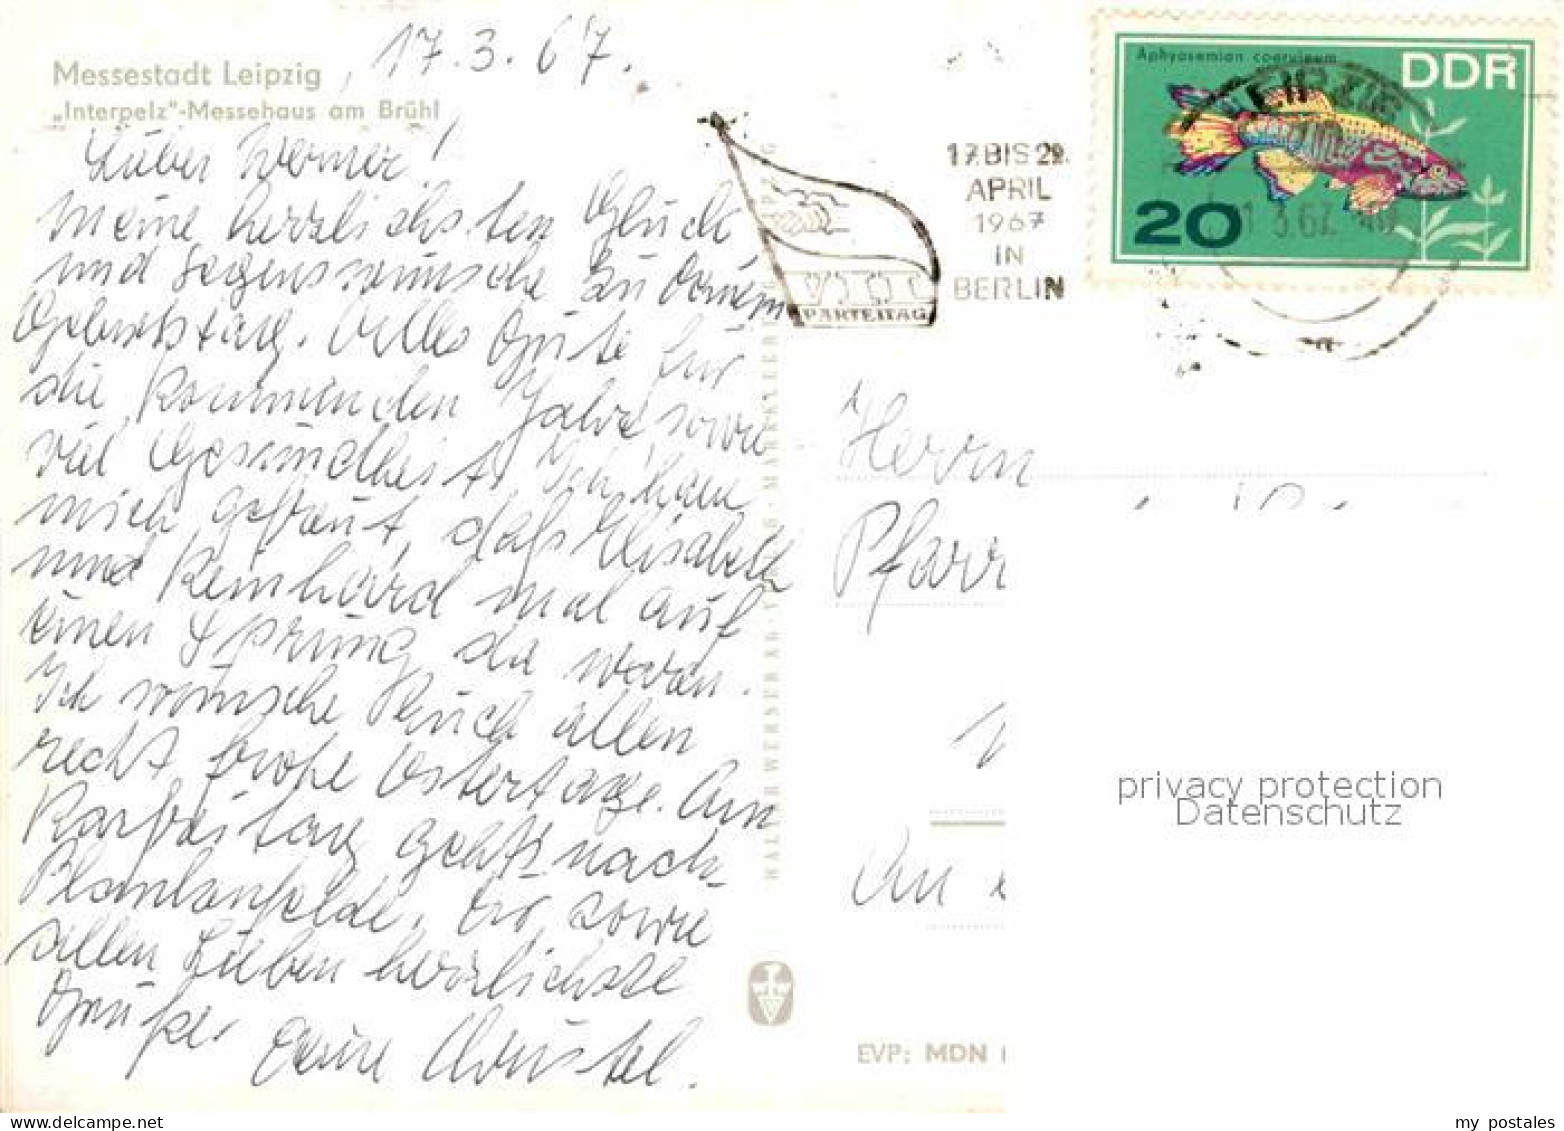 17.3.67.
Messestadt Leipzig
„Interpelz“-Messehaus am Brühl
Lieber Werner!
Meine herzlichsten Glück
und Segenswünsche zu Deinem
Geburtstag. Alles Gute für
die kommenden Jahre sowie
viel Gesundheit. Ich habe
mich gefreut, daß Elisabeth
und Reinhard mal auf
einen Sprung da waren.
Ich wünsche Euch allen
recht frohe Ostertage. Am
Karfreitag gehts nach
Blankenfelde. Dir sowie
allen Lieben herzlichste
Grüße Deine Christel.
17. BIS 22.
APRIL
1967
IN
BERLIN
VII.
PARTEITAG
Aphyosemion coeruleum
DDR
20
LEIPZIG
Herrn
Pfarr
An
EVP: MDN
privacy protection
Datenschutz
my postales